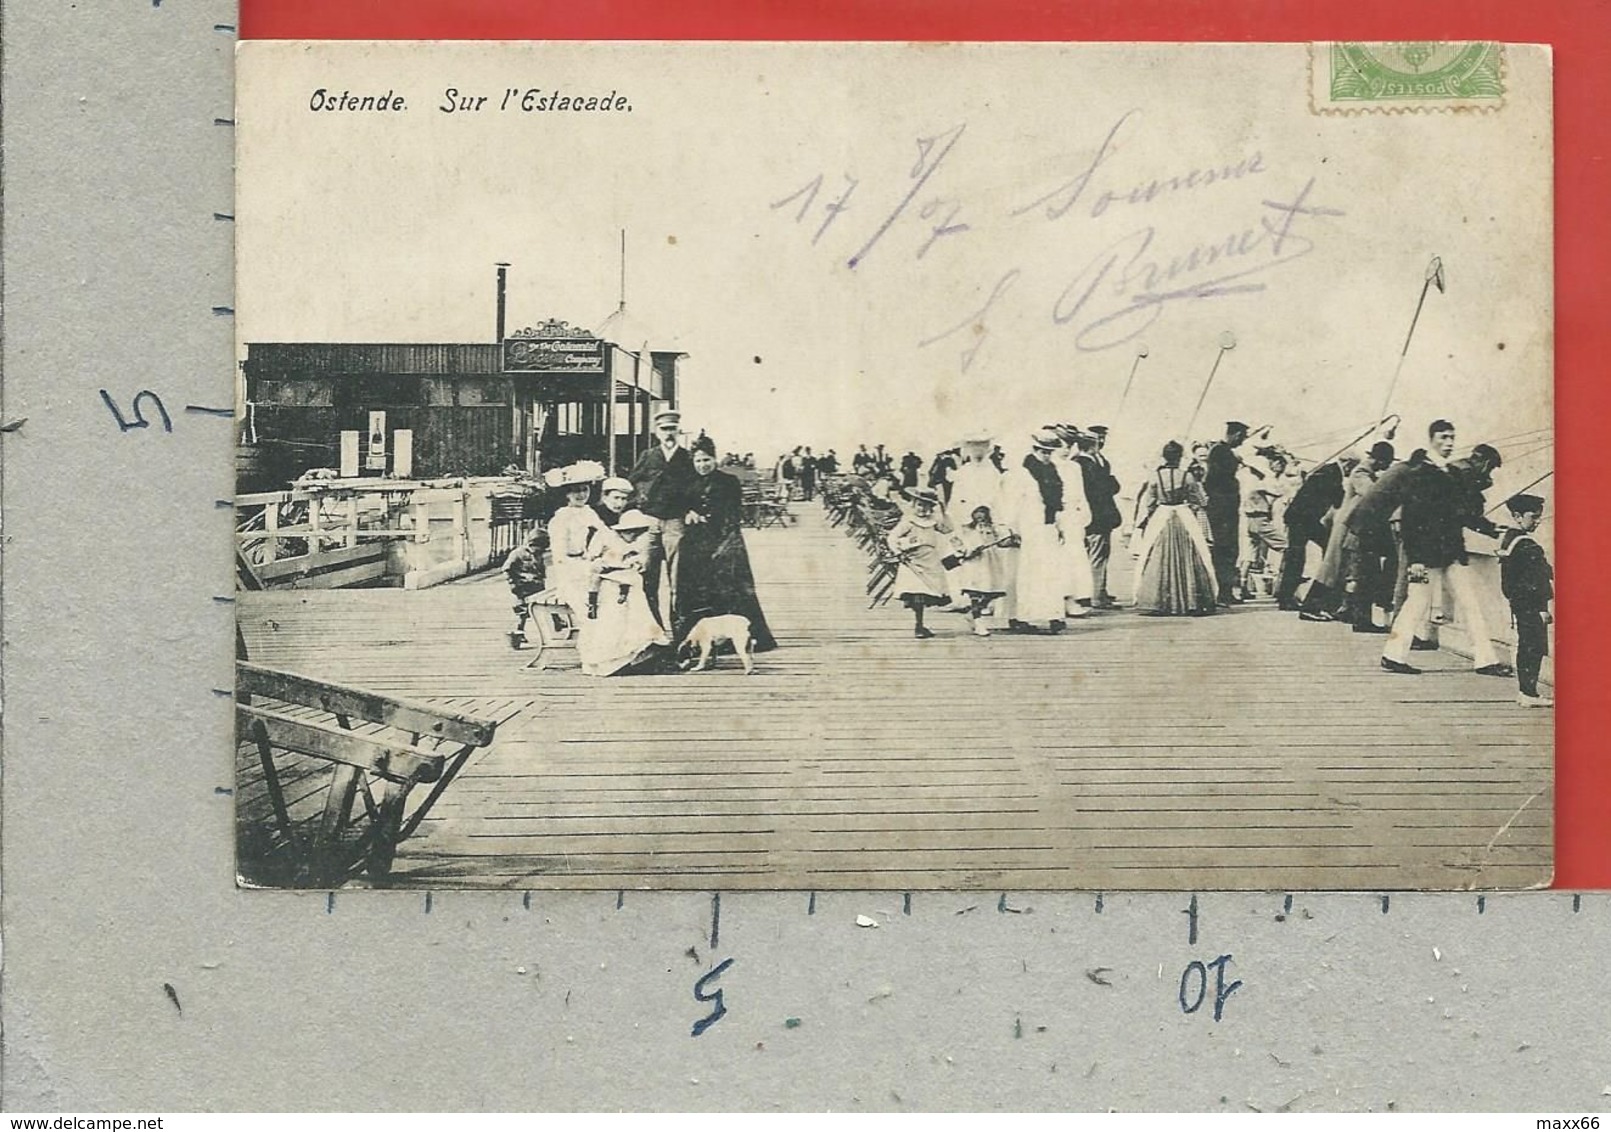 Ostende. Sur l'Estacade.
POSTES
17 8/07 Souvenir
G. Brunet
Continental
Bodega
Company
5
5
10
www.delcampe.net
maxx66